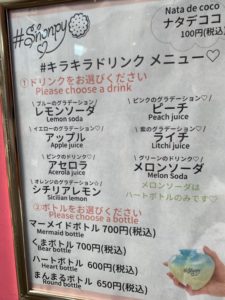 #Snonpy♡
Nata de coco
ナタデココ
100円(税込)
#キラキラドリンク メニュー♡
①ドリンクをお選びください
Please choose a drink
\ ブルーのグラデーション /
レモンソーダ
Lemon soda
\ ピンクのグラデーション♡ /
ピーチ
Peach juice
\ イエローのグラデーション♡ /
アップル
Apple juice
\ 紫のグラデーション♡ /
ライチ
Litchi juice
\ ピンクのドリンク♡ /
アセロラ
Acerola juice
\ グリーンのドリンク♡ /
メロンソーダ
Melon Soda
\ オレンジのグラデーション /
シチリアレモン
Sicilian lemon
メロンソーダは
ハートボトルのみです♡
②ボトルをお選びください
Please choose a bottle
マーメイドボトル 700円(税込)
Mermaid bottle
くまボトル 700円(税込)
Bear bottle
ハートボトル 600円(税込)
Heart bottle
まんまるボトル 650円(税込)
Round bottle